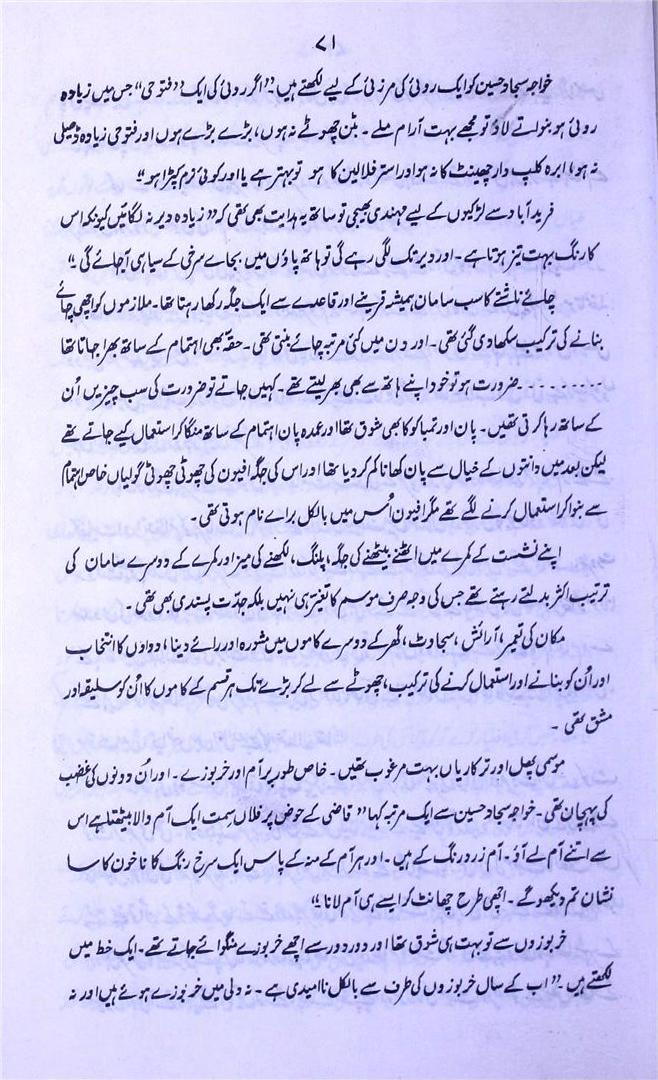 ۷۱
خواجہ سجاد حسین کو ایک روئی کی مرزئی کے لیے لکھتے ہیں۔ "اگر روئی کی ایک "فتوحی" جس میں زیادہ
روئی ہو بنواتے لاؤ تو مجھے بہت آرام ملے۔ بٹن چھوٹے نہ ہوں، بڑے بڑے ہوں اور فتوحی زیادہ ڈھیلی
نہ ہو؛ ابرہ کلپ دار چھینٹ کا نہ ہو اور استر فلالین کا ہو تو بہتر ہے یا اور کوئی نرم کپڑا ہو"
فرید آباد سے لڑکیوں کے لیے مہندی بھیجی تو ساتھ یہ ہدایت بھی تھی کہ "زیادہ دیر نہ لگائیں کیونکہ اس
کا رنگ بہت تیز ہوتا ہے۔ اور دیر تک لگی رہے گی تو ہاتھ پاؤں میں بجاے سرخی کے سیاہی آجائے گی"
چائے ناشتے کا سب سامان ہمیشہ قرینے اور قاعدے سے ایک جگہ رکھا رہتا تھا۔ ملازموں کو اچھی چائے
بنانے کی ترکیب سکھا دی گئی تھی۔ اور دن میں کئی مرتبہ چائے بنتی تھی۔ حقہ بھی اہتمام کے ساتھ بھرا جاتا تھا
.......... ضرورت ہو تو خود اپنے ہاتھ سے بھی بھر لیتے تھے۔ کہیں جاتے تو ضرورت کی سب چیزیں اُن
کے ساتھ رہا کرتی تھیں۔ پان اور تمباکو کا بھی شوق تھا اور عمدہ پان اہتمام کے ساتھ منگا کر استعمال کیے جاتے تھے
لیکن بعد میں دانتوں کے خیال سے پان کھانا کم کر دیا تھا اور اس کی جگہ افیون کی چھوٹی چھوٹی گولیاں خاص اہتمام
سے بنوا کر استعمال کرنے لگے تھے مگر افیون اُس میں بالکل براے نام ہوتی تھی۔
اپنے نشست کے کمرے میں اٹھنے بیٹھنے کی جگہ، پلنگ، لکھنے کی میز اور کمرے کے دوسرے سامان کی
ترتیب اکثر بدلتے رہتے تھے جس کی وجہ صرف موسم کا تغیّر ہی نہیں بلکہ جدّت پسندی بھی تھی۔
مکان کی تعمیر، آرائش، سجاوٹ، گھر کے دوسرے کاموں میں مشورہ اور رائے دینا، دواؤں کا انتخاب
اور اُن کو بنانے اور استعمال کرنے کی ترکیب، چھوٹے سے لے کر بڑے تک ہر قسم کے کاموں کا اُن کو سلیقہ اور
مشق تھی۔
موسمی پھل اور ترکاریاں بہت مرغوب تھیں۔ خاص طور پر آم اور خربوزے۔ اور اُن دونوں کی غضب
کی پہچان تھی۔ خواجہ سجاد حسین سے ایک مرتبہ کہا "قاضی کے حوض پر فلاں سمت ایک آم والا بیٹھتا ہے اس
سے اتنے آم لے آؤ۔ آم زرد رنگ کے ہیں۔ اور ہر آم کے منہ کے پاس ایک سرخ رنگ کا ناخون کا سا
نشان تم دیکھو گے۔ اچھی طرح چھانٹ کر ایسے ہی آم لانا"
خربوزوں سے تو بہت ہی شوق تھا اور دور دور سے اچھے خربوزے منگوائے جاتے تھے۔ ایک خط میں
لکھتے ہیں۔ "اب کے سال خربوزوں کی طرف سے بالکل ناامیدی ہے۔ نہ دلی میں خربوزے ہوئے ہیں اور نہ